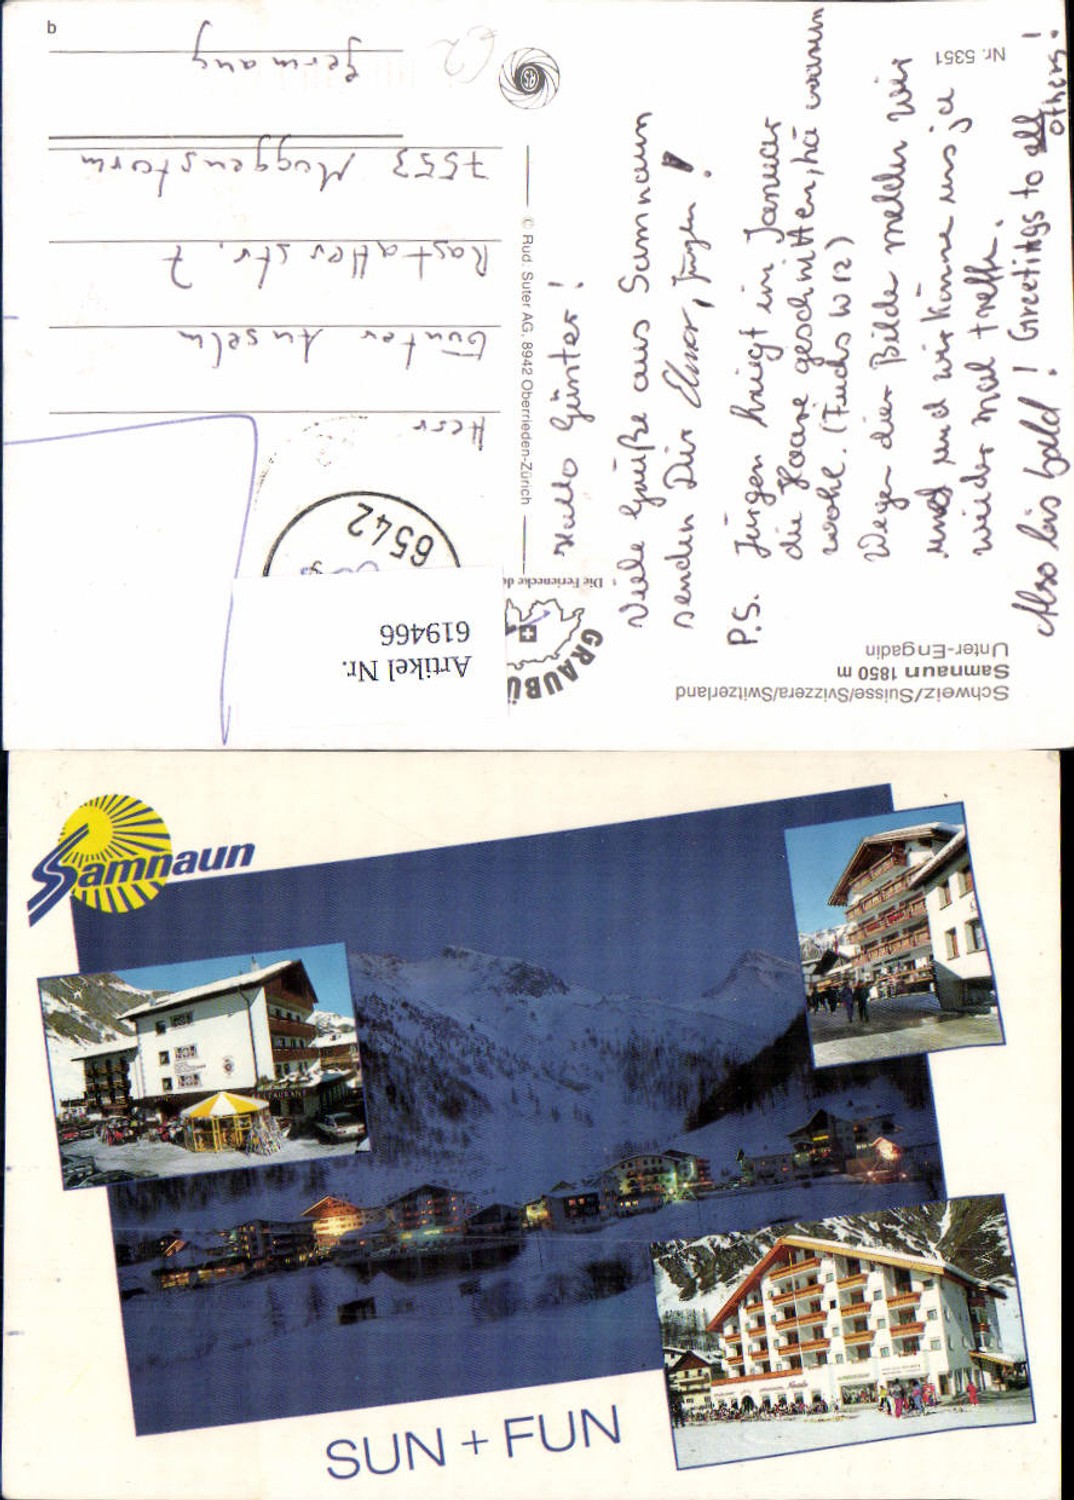 Schweiz/Suisse/Svizzera/Switzerland
Samnaun 1850 m
Unter-Engadin
Nr. 5351
GRAUBÜ
Die Ferienecke de
© Rud. Suter AG, 8942 Oberrieden-Zürich
AS
Hallo Günter!
Viele Grüße aus Samnaun
senden Dir Elmar, Jürgen!
P.S. Jürgen kriegt im Januar
die Haare geschnitten, hä warum
wohl. (Fuchs W 12)
Wegen dier Bilde melden wir
uns und wir könne uns ja
wieder mal treffe.
Also bis bald! Greetings to all
others!
6542
Artikel Nr.
619466
Herr
Günter Anselm
Rastatter str. 7
7553 Muggensturm
Germany
b
Samnaun
RESTAURANT
SUN + FUN